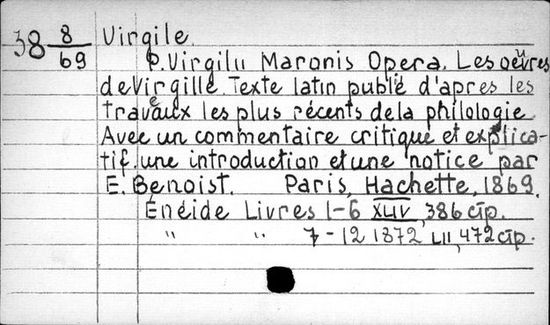 38 8/69 Virgile.
P. Virgilii Maronis Opera. Les oeuvres
de Virgille. Texte latin publié d'apres les
travaux les plus récents de la philologie
Avec un commentaire critique et explica-
tif, une introduction et une notice par
E. Benoist. Paris, Hachette, 1869.
Enéide Livres 1-6 XLIV, 386 стр.
" " 7-12 1872 LII, 472 стр.